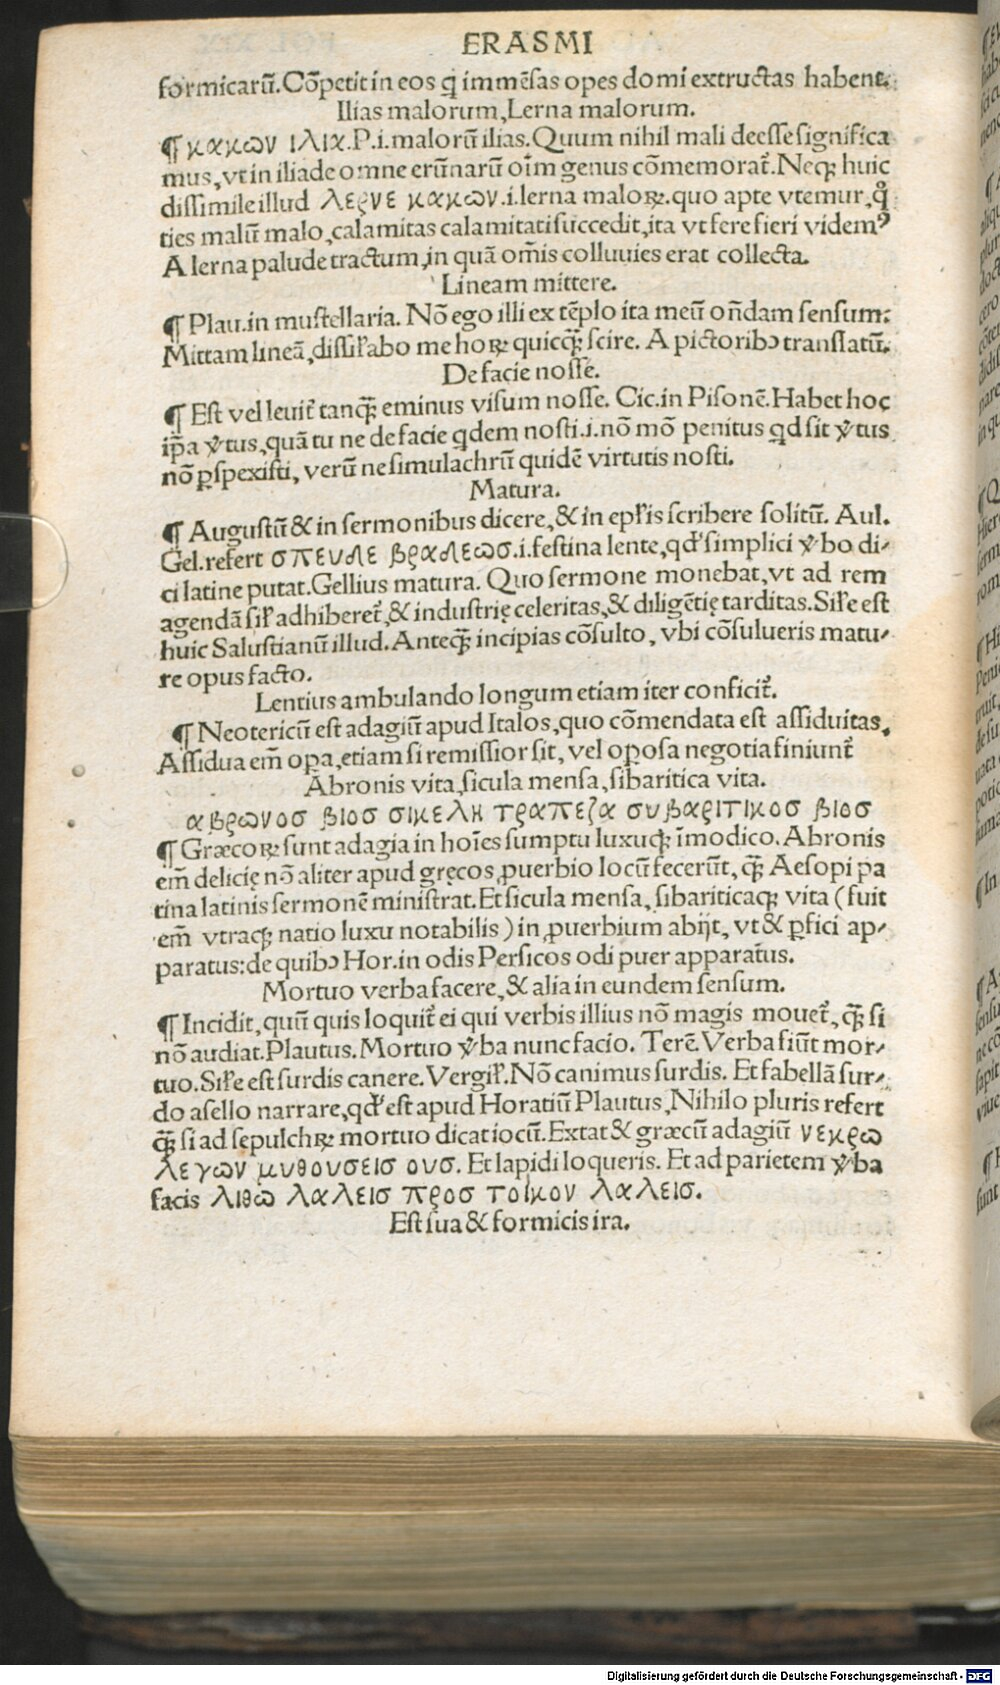 ERASMI
formicarū. Cōpetit in eos q̨ immēsas opes domi extructas habent.
Ilias malorum, Lerna malorum.
¶ κακων ιλια. P. i. malorū ilias. Quum nihil mali deesse significa
mus, vt in iliade omne erūnarū oīm genus cōmemorat̃. Neqꝫ huic
dissimile illud λερνε κακων .i. lerna maloꝝ. quo apte vtemur, q̊
ties malū malo, calamitas calamitati succedit, ita vt fere fieri videmꝰ
A lerna palude tractum, in quā om̄is colluuies erat collecta.
Lineam mittere.
¶ Plau. in mustellaria. Nō ego illi ex tēplo ita meū on̄dam sensum:
Mittam lineā, dissil̃abo me hoꝝ quicq̃ꝫ scire. A pictoribꝰ translatū.
De facie nosse.
¶ Est vel leuit̃ tanq̃ꝫ eminus visum nosse. Cic. in Pisonē. Habet hoc
ip̄a v̓tus, quā tu ne de facie qdem nosti .i. nō mō penitus qd sit v̓tus
nō ꝑspexisti, verū ne simulachrū quidē virtutis nosti.
Matura.
¶ Augustū & in sermonibus dicere, & in epl̃is scribere solitū. Aul.
Gel. refert σπευδε βραδεωσ .i. festina lente, qd̓ simplici v̓bo di⸗
ci latine putat. Gellius matura. Quo sermone monebat, vt ad rem
agendā sil̃ adhiberet̃, & industrię celeritas, & diligētię tarditas. Sil̃e est
huic Salustianū illud. Anteq̃ꝫ incipias cōsulto, vbi cōsulueris matu⸗
re opus facto.
Lentius ambulando longum etiam iter conficit̃.
¶ Neotericū est adagiū apud Italos, quo cōmendata est assiduitas.
Assidua em̄ oꝑa, etiam si remissior sit, vel oꝑosa negotia finiunt̃
Abronis vita, sicula mensa, sibaritica vita.
αβρωνοσ βιοσ σικελη τραπεζα συβαριτικοσ βιοσ
¶ Græcoꝝ sunt adagia in hoīes sumptu luxuqꝫ īmodico. Abronis
em̄ delicię nō aliter apud gręcos ꝓuerbio locū fecerūt, q̃ꝫ Aesopi pa
tina latinis sermonē ministrat. Et sicula mensa, sibariticaqꝫ vita (fuit
em̄ vtraqꝫ natio luxu notabilis) in ꝓuerbium abijt, vt & ꝑsici ap⸗
paratus: de quibꝰ Hor. in odis Persicos odi puer apparatus.
Mortuo verba facere, & alia in eundem sensum.
¶ Incidit, quū quis loquit̃ ei qui verbis illius nō magis mouet̃, q̃ꝫ si
nō audiat. Plautus. Mortuo v̓ba nunc facio. Terē. Verba fiūt mor⸗
tuo. Sil̃e est surdis canere. Vergil̃. Nō canimus surdis. Et fabellā sur⸗
do asello narrare, qd̓ est apud Horatiū Plautus, Nihilo pluris refert
q̃ꝫ si ad sepulchꝝ mortuo dicat iocū. Extat & græcū adagiū νεκρω
λεγων μυθουσεισ ουσ. Et lapidi loqueris. Et ad parietem v̓ba
facis λιθω λαλεισ προσ τοικον λαλεισ.
Est sua & formicis ira.
Digitalisierung gefördert durch die Deutsche Forschungsgemeinschaft - DFG